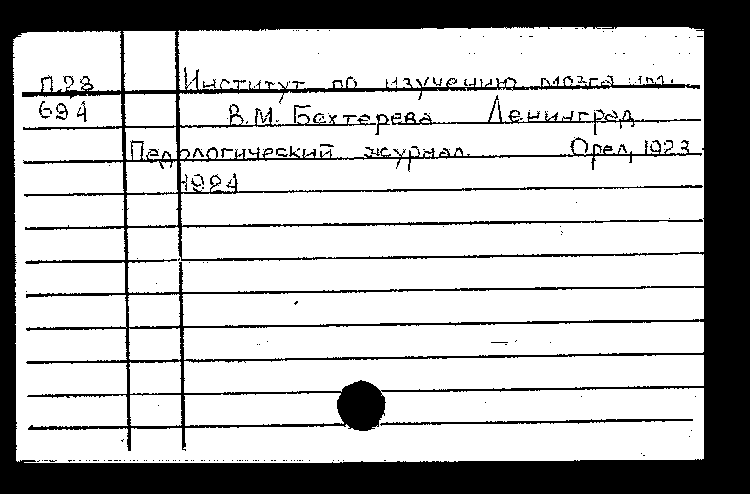 П.28 Институт по изучению мозга им.
694 В.М. Бехтерева Ленинград
Педологический журнал. Орел, 1923-
1924